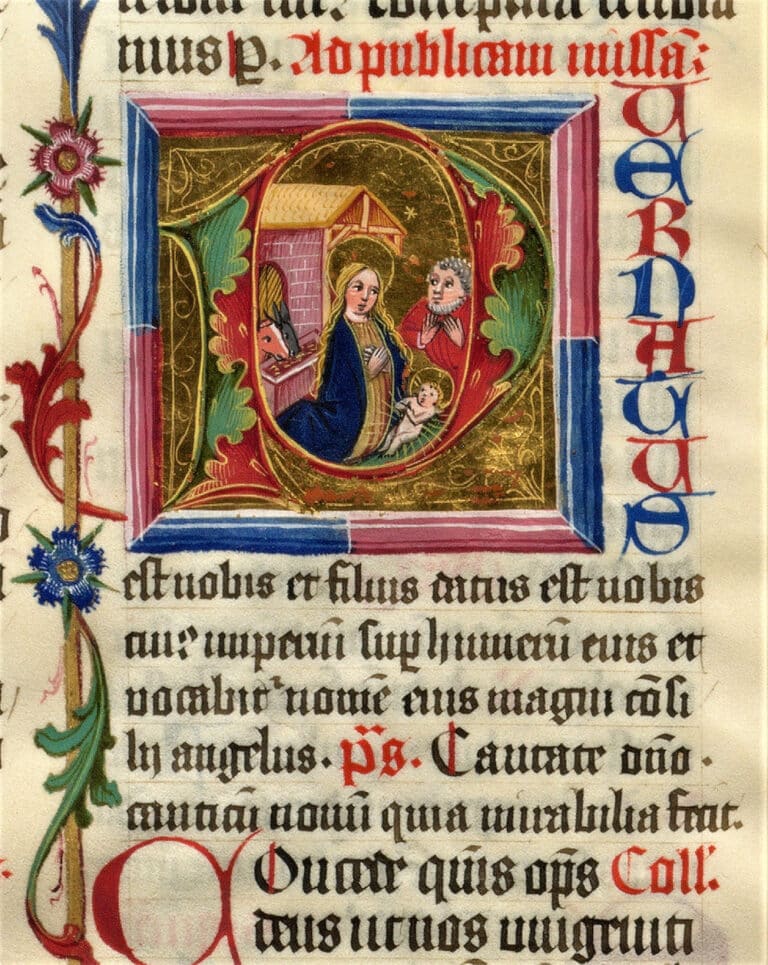 mus p. Ad publicam missā:
PUERNATUS
est nobis et filius datus est nobis
cui⁹ imperiū suꝑ humerū eius et
vocabit᷑ nomē eius magni cōsi
lij angelus. p̄s. Cantate dño.
canticū novū quia mirabilia fecit.
Concede quīs op̄s Coll'.
deus ut nos unigeniti